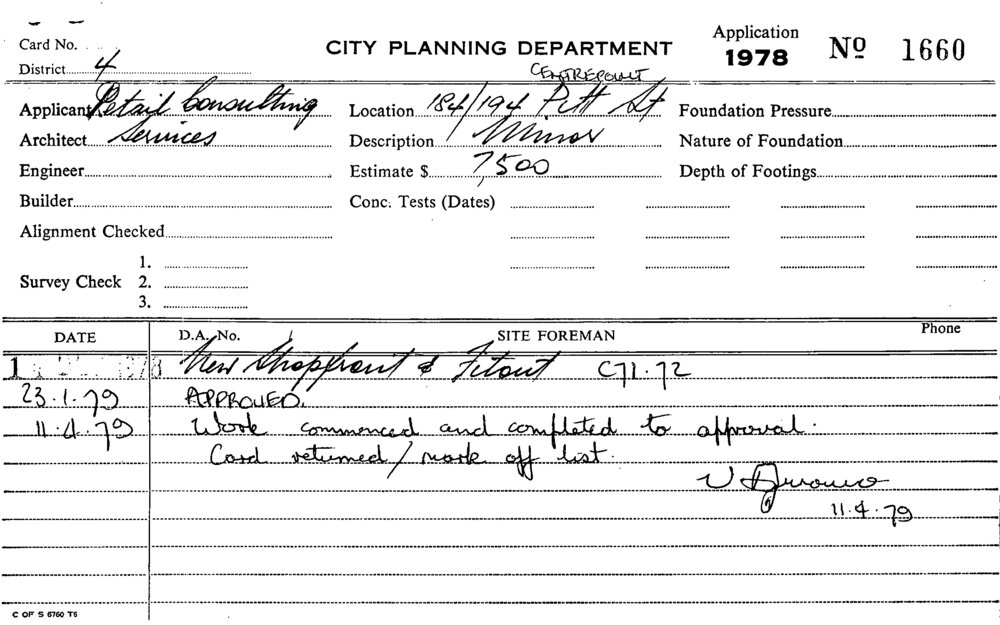 Card No.
CITY PLANNING DEPARTMENT
Application
1978 Nº 1660
District 4
CENTREPOINT
Applicant Retail Consulting
Location 184/194 Pitt St
Foundation Pressure
Architect Services
Description Minor
Nature of Foundation
Engineer
Estimate $ 7,500
Depth of Footings
Builder
Conc. Tests (Dates)
Alignment Checked
Survey Check 1.
2.
3.
DATE D.A. No. SITE FOREMAN Phone
New Shopfront & Fitout C71.72
23.1.79 APPROVED.
11.4.79 Work commenced and completed to approval.
Card returned/mark off list.
11.4.79
C OF S 6760 T6